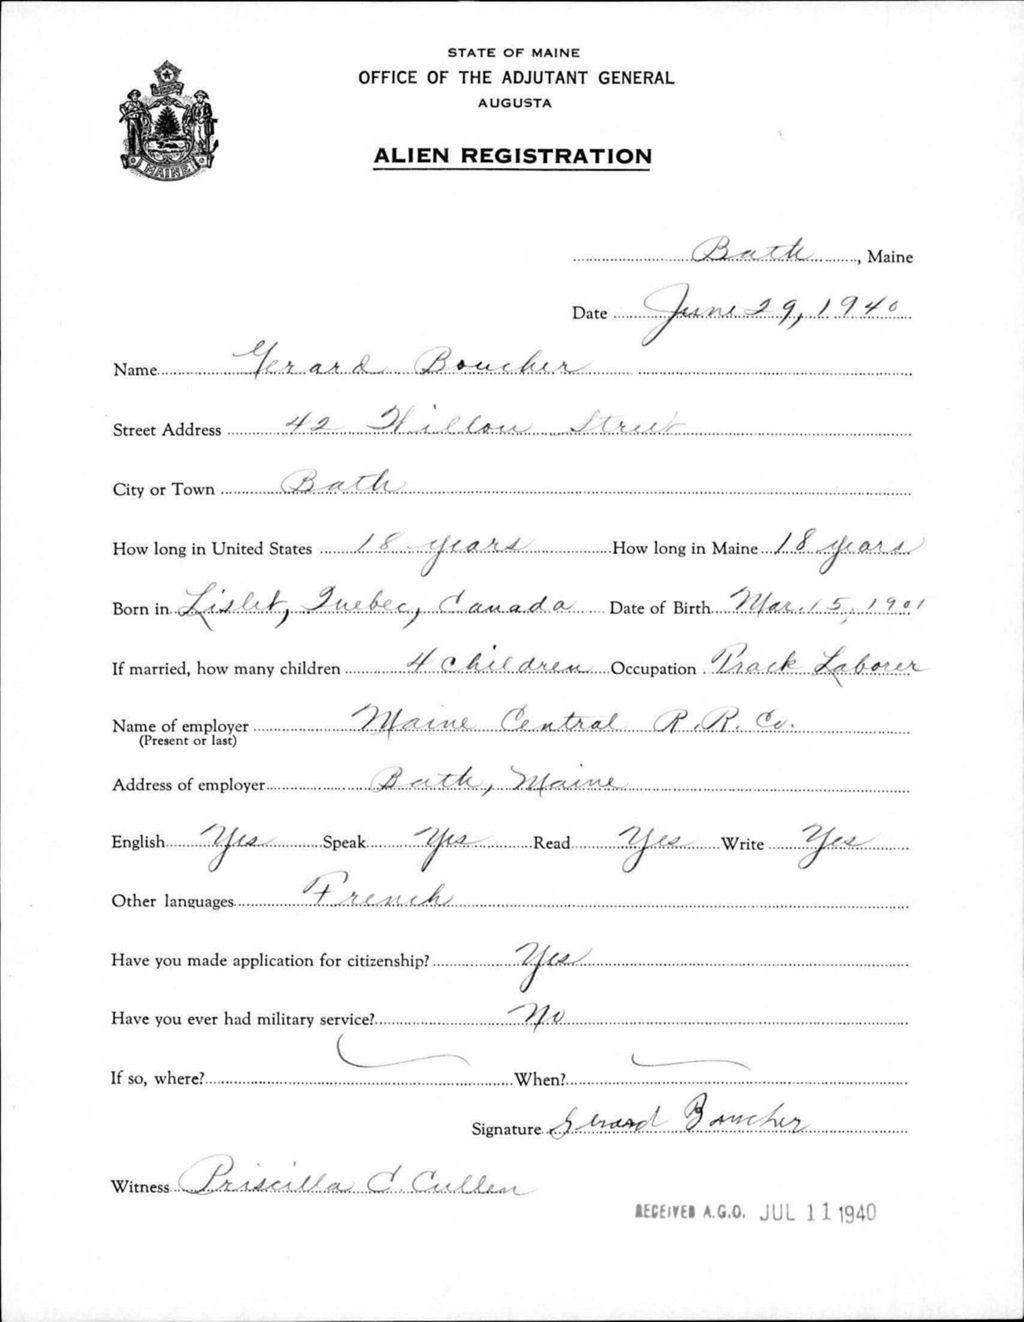 STATE OF MAINE
OFFICE OF THE ADJUTANT GENERAL
AUGUSTA
ALIEN REGISTRATION
MAINE
Bath, Maine
Date June 29, 1940
Name Gerard Boucher
Street Address 42 Willow Street
City or Town Bath
How long in United States 18 years How long in Maine 18 years
Born in Lislet, Quebec, Canada Date of Birth Mar. 15, 1901
If married, how many children 4 children Occupation Track Laborer
Name of employer Maine Central R. R. Co.
(Present or last)
Address of employer Bath, Maine
English Yes Speak Yes Read Yes Write Yes
Other languages French
Have you made application for citizenship? Yes
Have you ever had military service? No
If so, where? When?
Signature Gerard Boucher
Witness Priscilla C. Cullen
RECEIVED A.G.O. JUL 11 1940